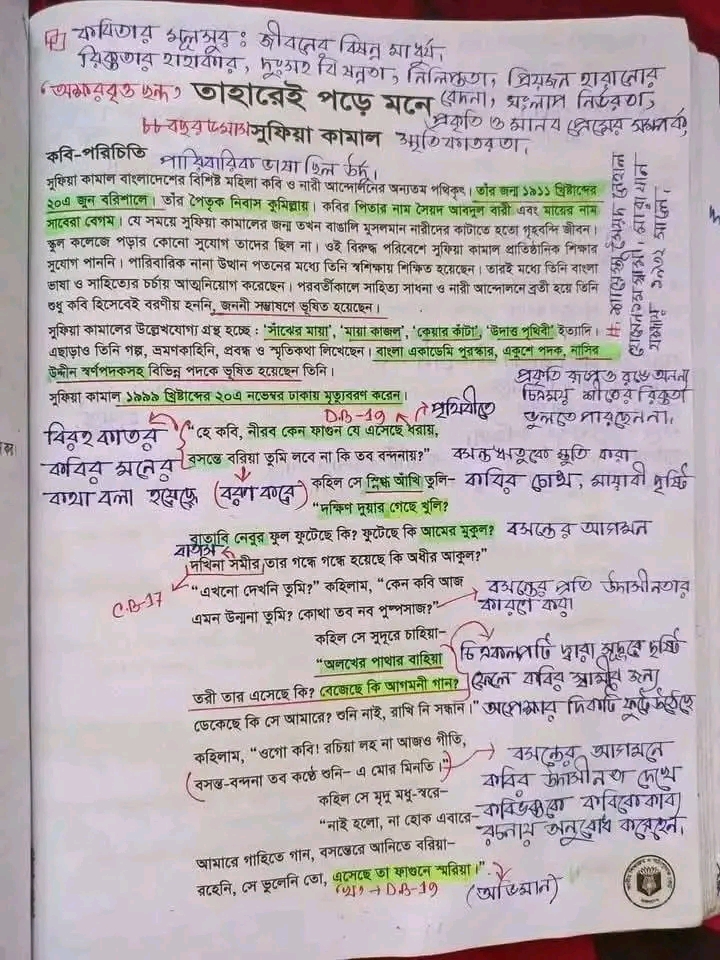 কবিতার মূলসুর : জীবনের বিষন্ন মাধুর্য,
রিক্ততার হাহাকার, দুঃসহ বিষন্নতা, নির্লিপ্ততা, প্রিয়জন হারানোর
'অক্ষরবৃত্ত ছন্দ' তাহারেই পড়ে মনে বেদনা, সংলাপ নির্ভরতা,
প্রকৃতি ও মানব প্রেমের সম্পর্ক,
সুফিয়া কামাল স্মৃতিকাতরতা,
কবি-পরিচিতি পারিবারিক ভাষা ছিল উর্দু।
সুফিয়া কামাল বাংলাদেশের বিশিষ্ট মহিলা কবি ও নারী আন্দোলনের অন্যতম পথিকৃৎ। তাঁর জন্ম ১৯১১ খ্রিষ্টাব্দের
২০এ জুন বরিশালে। তাঁর পৈতৃক নিবাস কুমিল্লায়। কবির পিতার নাম সৈয়দ আবদুল বারী এবং মায়ের নাম
সাবেরা বেগম। যে সময়ে সুফিয়া কামালের জন্ম তখন বাঙালি মুসলমান নারীদের কাটাতে হতো গৃহবন্দি জীবন।
স্কুল কলেজে পড়ার কোনো সুযোগ তাদের ছিল না। ওই বিরুদ্ধ পরিবেশে সুফিয়া কামাল প্রাতিষ্ঠানিক শিক্ষার
সুযোগ পাননি। পারিবারিক নানা উত্থান পতনের মধ্যে তিনি স্বশিক্ষায় শিক্ষিত হয়েছেন। তারই মধ্যে তিনি বাংলা
ভাষা ও সাহিত্যের চর্চায় আত্মনিয়োগ করেছেন। পরবর্তীকালে সাহিত্য সাধনা ও নারী আন্দোলনে ব্রতী হয়ে তিনি
শুধু কবি হিসেবেই বরণীয় হননি, জননী সম্ভাষণে ভূষিত হয়েছেন।
সুফিয়া কামালের উল্লেখযোগ্য গ্রন্থ হচ্ছে : 'সাঁঝের মায়া', 'মায়া কাজল', 'কেয়ার কাঁটা', 'উদাত্ত পৃথিবী' ইত্যাদি।
এছাড়াও তিনি গল্প, ভ্রমণকাহিনি, প্রবন্ধ ও স্মৃতিকথা লিখেছেন। বাংলা একাডেমি পুরস্কার, একুশে পদক, নাসির
উদ্দীন স্বর্ণপদকসহ বিভিন্ন পদকে ভূষিত হয়েছেন তিনি।
সুফিয়া কামাল ১৯৯৯ খ্রিষ্টাব্দের ২০এ নভেম্বর ঢাকায় মৃত্যুবরণ করেন।
প্রকৃতি রূপে ও রঙে অনন্য
চিত্রময় শীতের রিক্ততা
ভুলতে পারছেন না।
D.B-19 পৃথিবীতে
বিরহ কাতর "হে কবি, নীরব কেন ফাগুন যে এসেছে ধরায়,
কবির মনের বসন্তে বরিয়া তুমি লবে না কি তব বন্দনায়?" বসন্ত ঋতুকে স্তুতি করা
কথা বলা হয়েছে (বরণ করে) কহিল সে স্নিগ্ধ আঁখি তুলি- কবির চোখ, মায়াবী দৃষ্টি
"দক্ষিণ দুয়ার গেছে খুলি?
বাতাবি নেবুর ফুল ফুটেছে কি? ফুটেছে কি আমের মুকুল? বসন্তের আগমন
বাতাস
দখিনা সমীর তার গন্ধে গন্ধে হয়েছে কি অধীর আকুল?"
C.B-17 "এখনো দেখনি তুমি?" কহিলাম, "কেন কবি আজ বসন্তের প্রতি উদাসীনতার
এমন উন্মনা তুমি? কোথা তব নব পুষ্পসাজ?" কারণে করা
কহিল সে সুদূরে চাহিয়া-
চিত্রকল্পটি দ্বারা সুদূরে দৃষ্টি
"অলখের পাথার বাহিয়া
তরী তার এসেছে কি? বেজেছে কি আগমনী গান? ফেলে কবির স্বামীর জন্য
ডেকেছে কি সে আমারে? শুনি নাই, রাখি নি সন্ধান।" অপেক্ষার দিকটি ফুটে উঠেছে
কহিলাম, "ওগো কবি! রচিয়া লহ না আজও গীতি, বসন্তের আগমনে
বসন্ত-বন্দনা তব কণ্ঠে শুনি- এ মোর মিনতি।" কবির উদাসীনতা দেখে
কহিল সে মৃদু মধু-স্বরে- কবিভক্তরা কবিকে কাব্য
"নাই হলো, না হোক এবারে- রচনায় অনুরোধ করেছেন।
আমারে গাহিতে গান, বসন্তেরে আনিতে বরিয়া-
রহেনি, সে ভুলেনি তো, এসেছে তা ফাগুনে স্মরিয়া।"
D.B-19 (অভিমান)